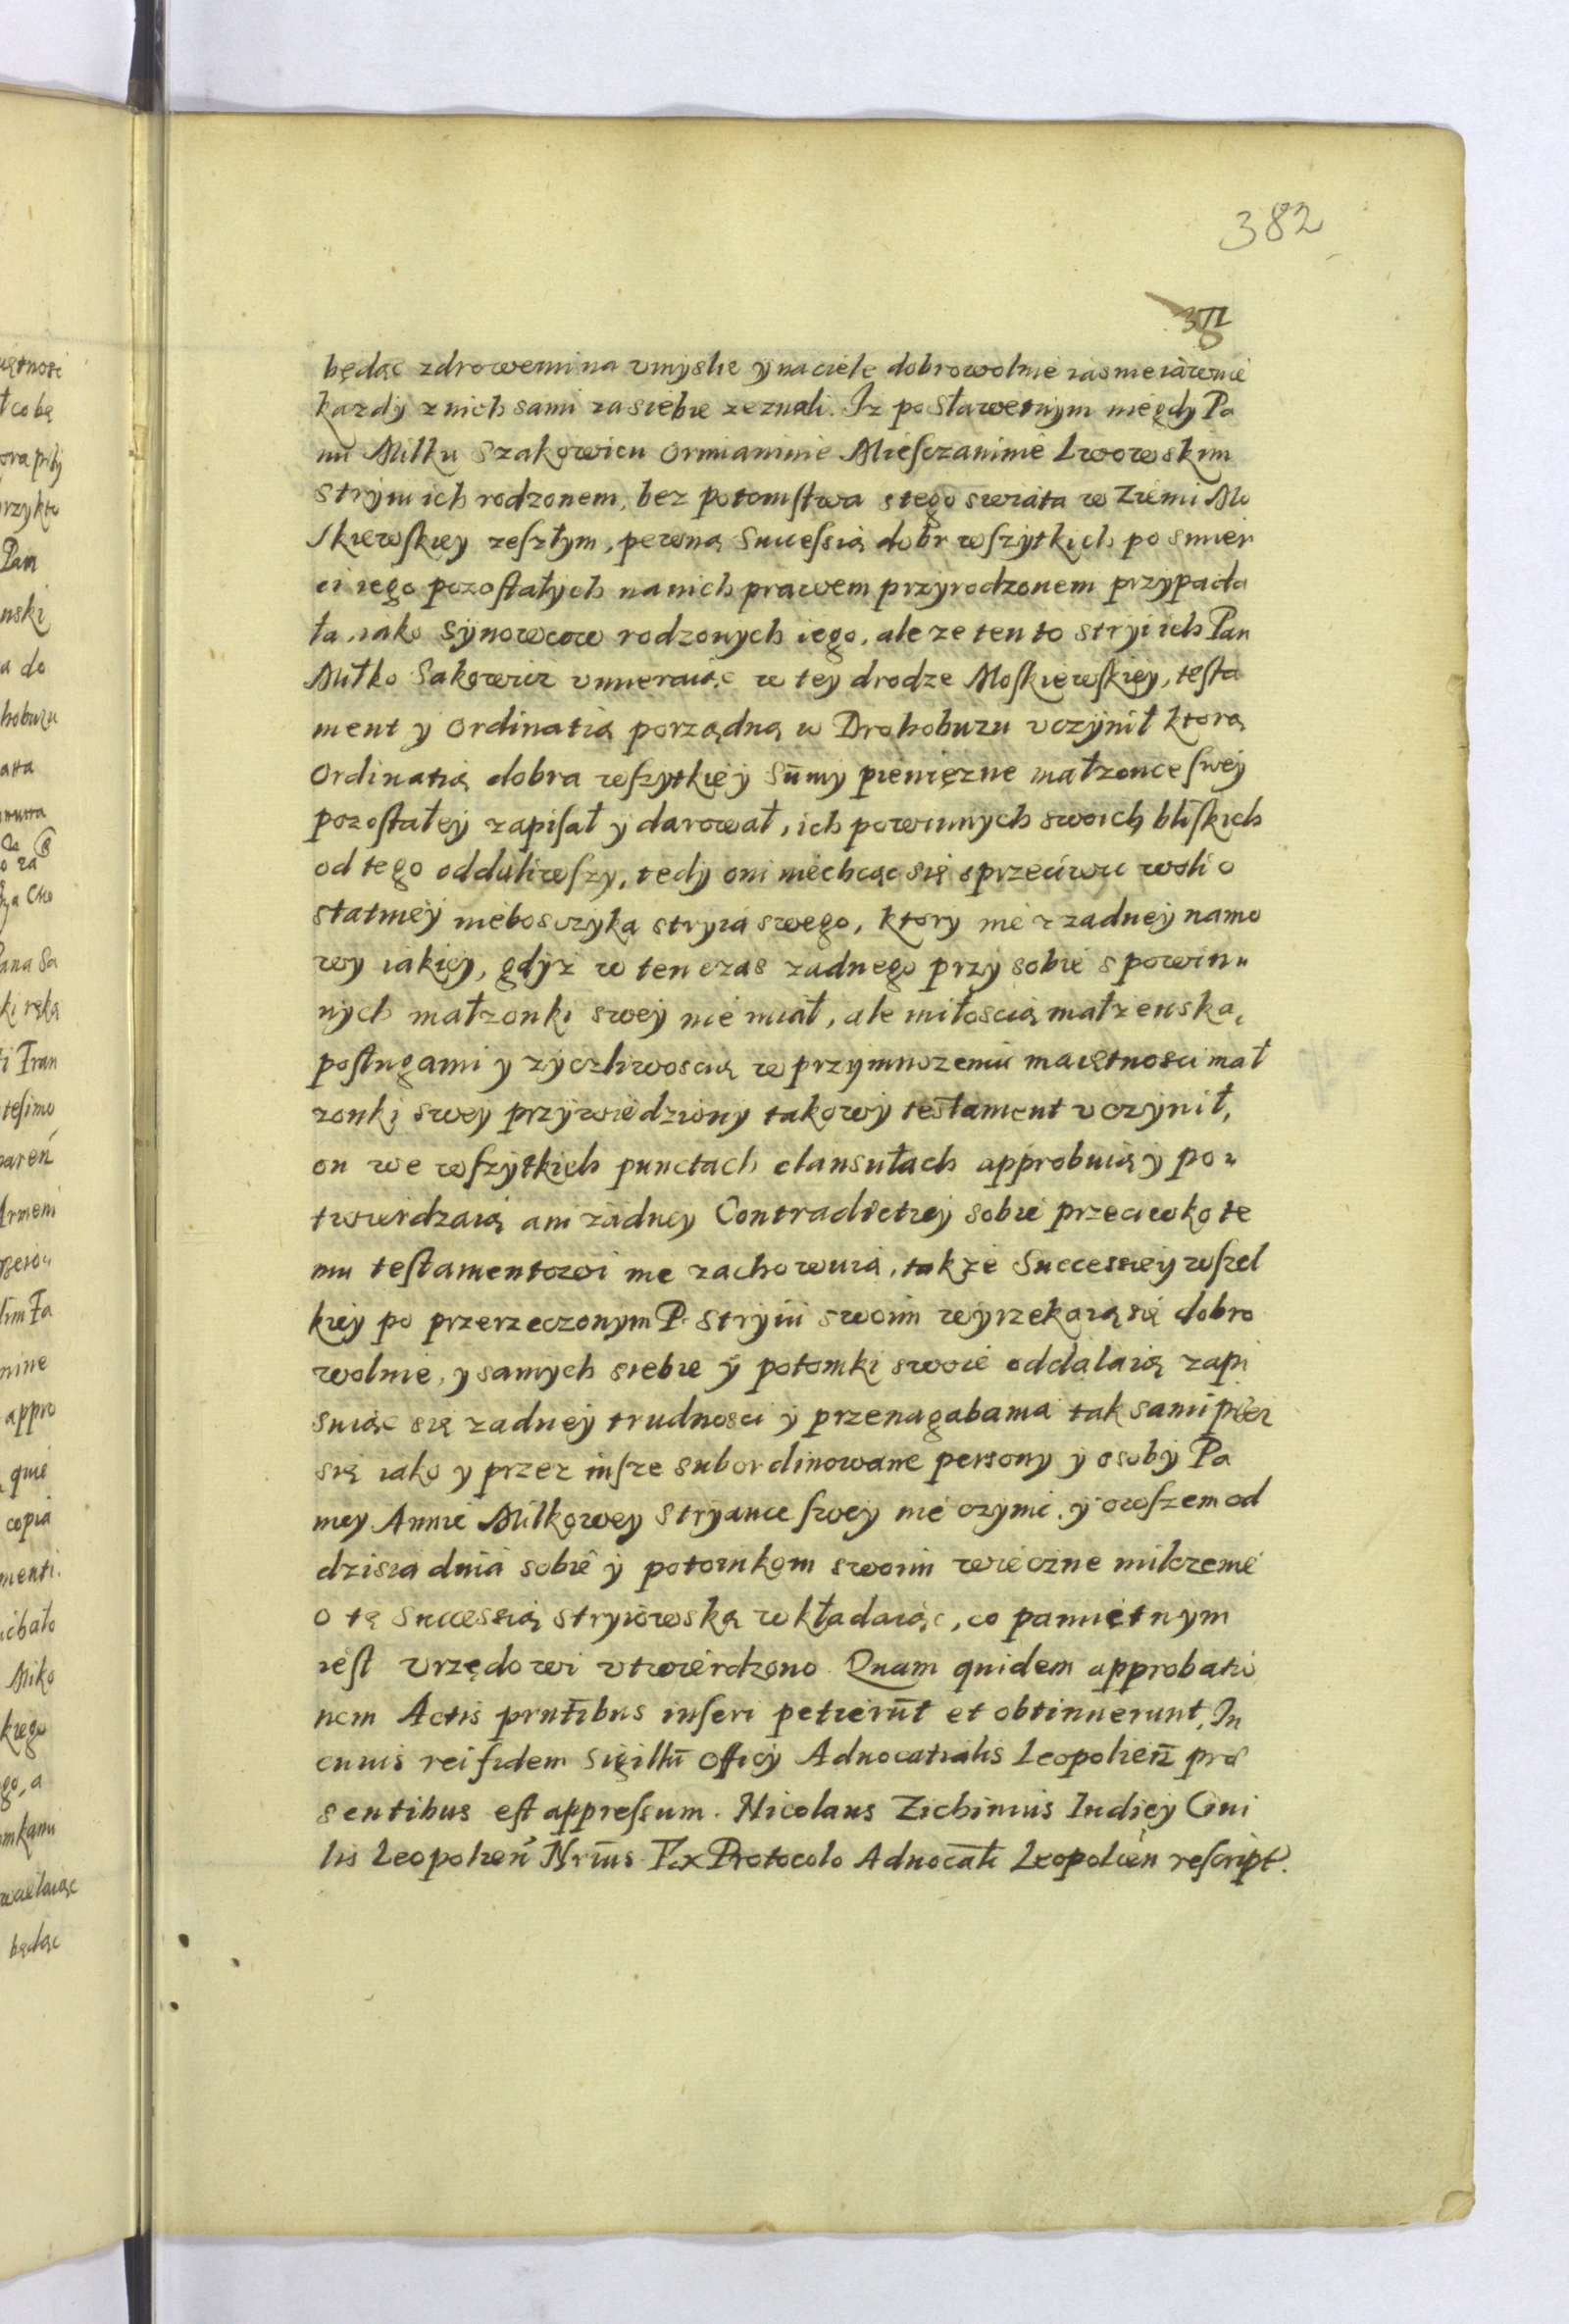 382
371
będąc zdrowemi na vmyslie y na ciele dobrowolnie iasnie iawnie
kazdy z nich sami za siebie zeznali. Iz po Sławetnym niegdy Pa
nu Miłku Szakowicu Ormianinie Miesczaninie Lwowskim
stryiu ich rodzonem, bez potomstwa s tego swiata w Ziemi Mo
skiewskiey zeszłym, pewna Successia dobr wszytkich po smier
ci iego pozostałych na nich prawem przyrodzonem przypada
ła, iako Synowcow rodzonych iego, ale ze ten to stryi ich Pan
Miłko Sakowicz vmieraiąc w tey drodze Moskiewskiey, testa
ment y Ordinatią porządną w Drohobuzu vczynił ktorą
Ordinatią dobra wszytkie y Sūmy pienięzne małzonce swey
pozostałey zapisał y darował, ich powinnych swoich bliskich
od tego oddaliwszy, tedy oni niechcąc się sprzeciwic woli o
statniey niebosczyka stryia swego, ktory nie z zadney namo
wy iakiey, gdyz w ten czas zadnego przy sobie s powin„
nych małzonki swey nie miał, ale miłoscią małzenską,
posługami y zyczliwoscią w przymnozeniu maiętnosci mał
zonki swey przywiedziony takowy testament vczynił,
on we wszytkich punctach clausułach approbuią y po„
twierdzaią ani zadney Contradictiey sobie przeciwko te
mu testamentowi nie zachowuią, takze Successiey wszel
kiey po przerzeczonym P. Stryiu swoim wyrzekaią się dobro
wolnie, y samych siebie y potomki swoie oddalaią zapi
suiąc się zadney trudnosci y przenagabania tak sami przez
się iako y przez insze subordinowane persony y osoby Pa
niey Annie Miłkowey Stryance swey nie czynic. y owszem od
dzisia dnia sobie y potomkom swoim wieczne milczenie
o tę Successią stryiowską wkładaiąc, co pamiętnym
iest vrzędowi vtwierdzono Quam quidem approbatio
nem Actis prn̄tibus inseri petierūt et obtinuerunt, In
cuius rei fidem Sigillū Officÿ Aduocatialis Leopolien̄ prae
sentibus est appressum. Nicolaus Zichinius Iudicÿ Ciui
lis Leopolien̄ Nrius Ex Protocolo Aduocāli Leopolien rescript.